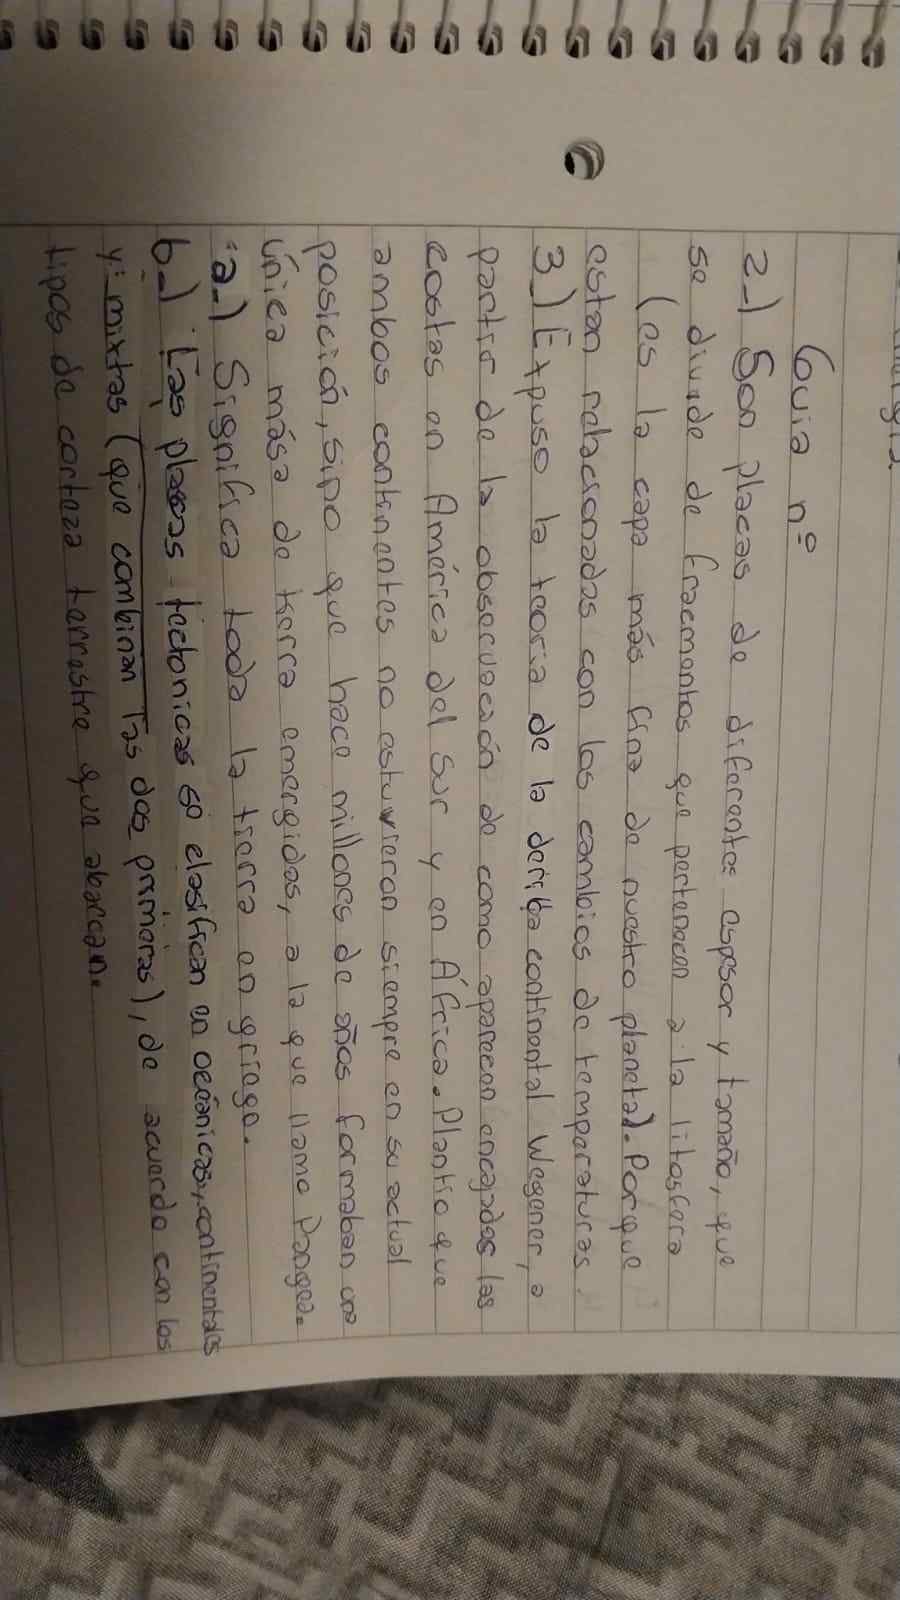 Guia nº
2-) Son placas de diferentes espesor y tamaño, que
se divide de fraementos que pertenecen a la litosfera
(es la capa más fina de nuestro planeta). Porque
estan relacionadas con los cambios de temperaturas.
3-) Expuso la teoria de la deriba continental Wegener, a
partir de la observación de como aparecen encajadas las
costas en América del Sur y en África. Plantio que
ambos continentes no estuvieron siempre en su actual
posición, sino que hace millones de años formaban una
única mása de tierra emergidas, a la que llamo Pangea.
a-) Significa toda la tierra en griego.
b-) Las placas tectonicas se clasifican en oceánicas, continentales
y: mixtas (que combinan las dos primeras), de acuerdo con los
tipos de corteza terrestre que abarcan.